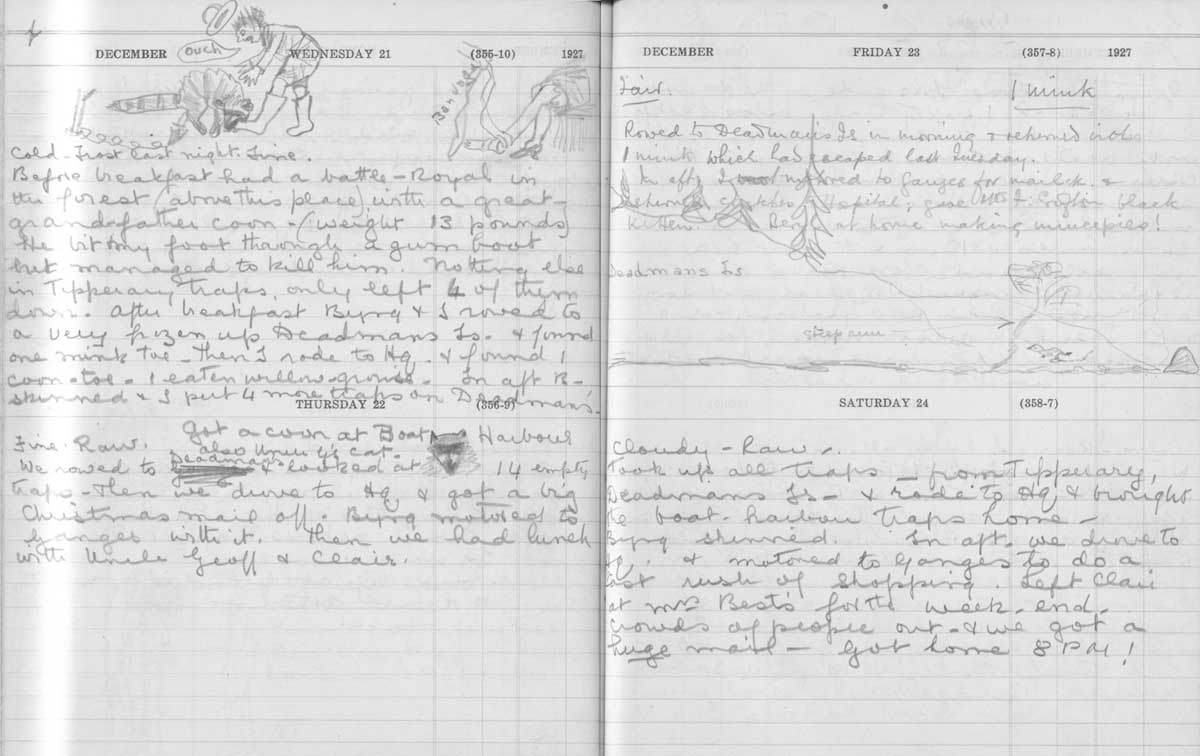 DECEMBER WEDNESDAY 21 (355-10) 1927
Ouch
Cold - Frost last night. Fine.
Before breakfast had a battle-Royal in
the forest (above this place) with a great-
grandfather coon - (weight 13 pounds)
He bit my foot through a gum boot
but managed to kill him. Nothing else
in Tipperary traps, only left 4 of them
down. After breakfast Byng & I rowed to
a very frozen up Deadmans Is. & found
one mink toe - then I rode to Hq. & found 1
coon-toe - 1 eaten willow-grouse. In aft B-
skinned & I put 4 more traps on Deadman's.
THURSDAY 22 (356-9)
Fine. Raw. Got a coon at Boat Harbour
also Uncle G's cat.
We rowed to Deadmans & looked at 14 empty
traps - then we drove to Hq & got a big
Christmas mail off. Byng motored to
Ganges with it. Then we had lunch
with Uncle Geoff & Clair.
DECEMBER FRIDAY 23 (357-8) 1927
Fair. 1 mink
Rowed to Deadmans Is in morning & returned with
1 mink which had escaped last Tuesday.
In aft. I motored to Ganges for mail &
returned Hospital; gave black
kitten. at home making mincepies!
Deadmans Is
steep
SATURDAY 24 (358-7)
Cloudy - Raw -
Took up all traps - from Tipperary,
Deadmans Is - & rode to Hq & brought
the boat-harbour traps home -
Byng skinned. In aft. we drove to
Hq. & motored to Ganges to do a
last rush of shopping. Left Clair
at Mrs Best's for the week-end -
Crowds of people out - & we got a
huge mail - Got home 8 P.M!